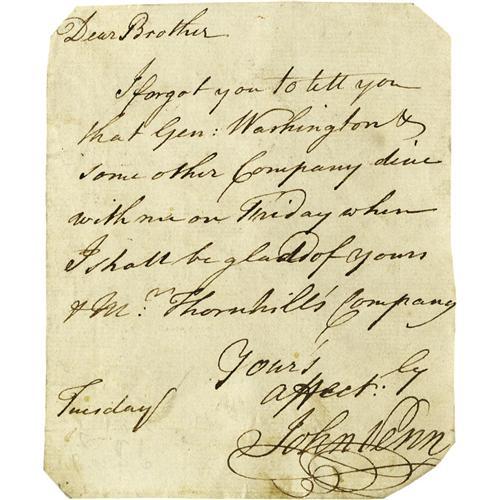 Dear Brother
I forgot you to tell you
that Gen: Washington &
some other Company dine
with me on Friday when
I shall be glad of yours
& Mr. Thornhill's Company
Yours
affect: ly
Tuesday
John Penn